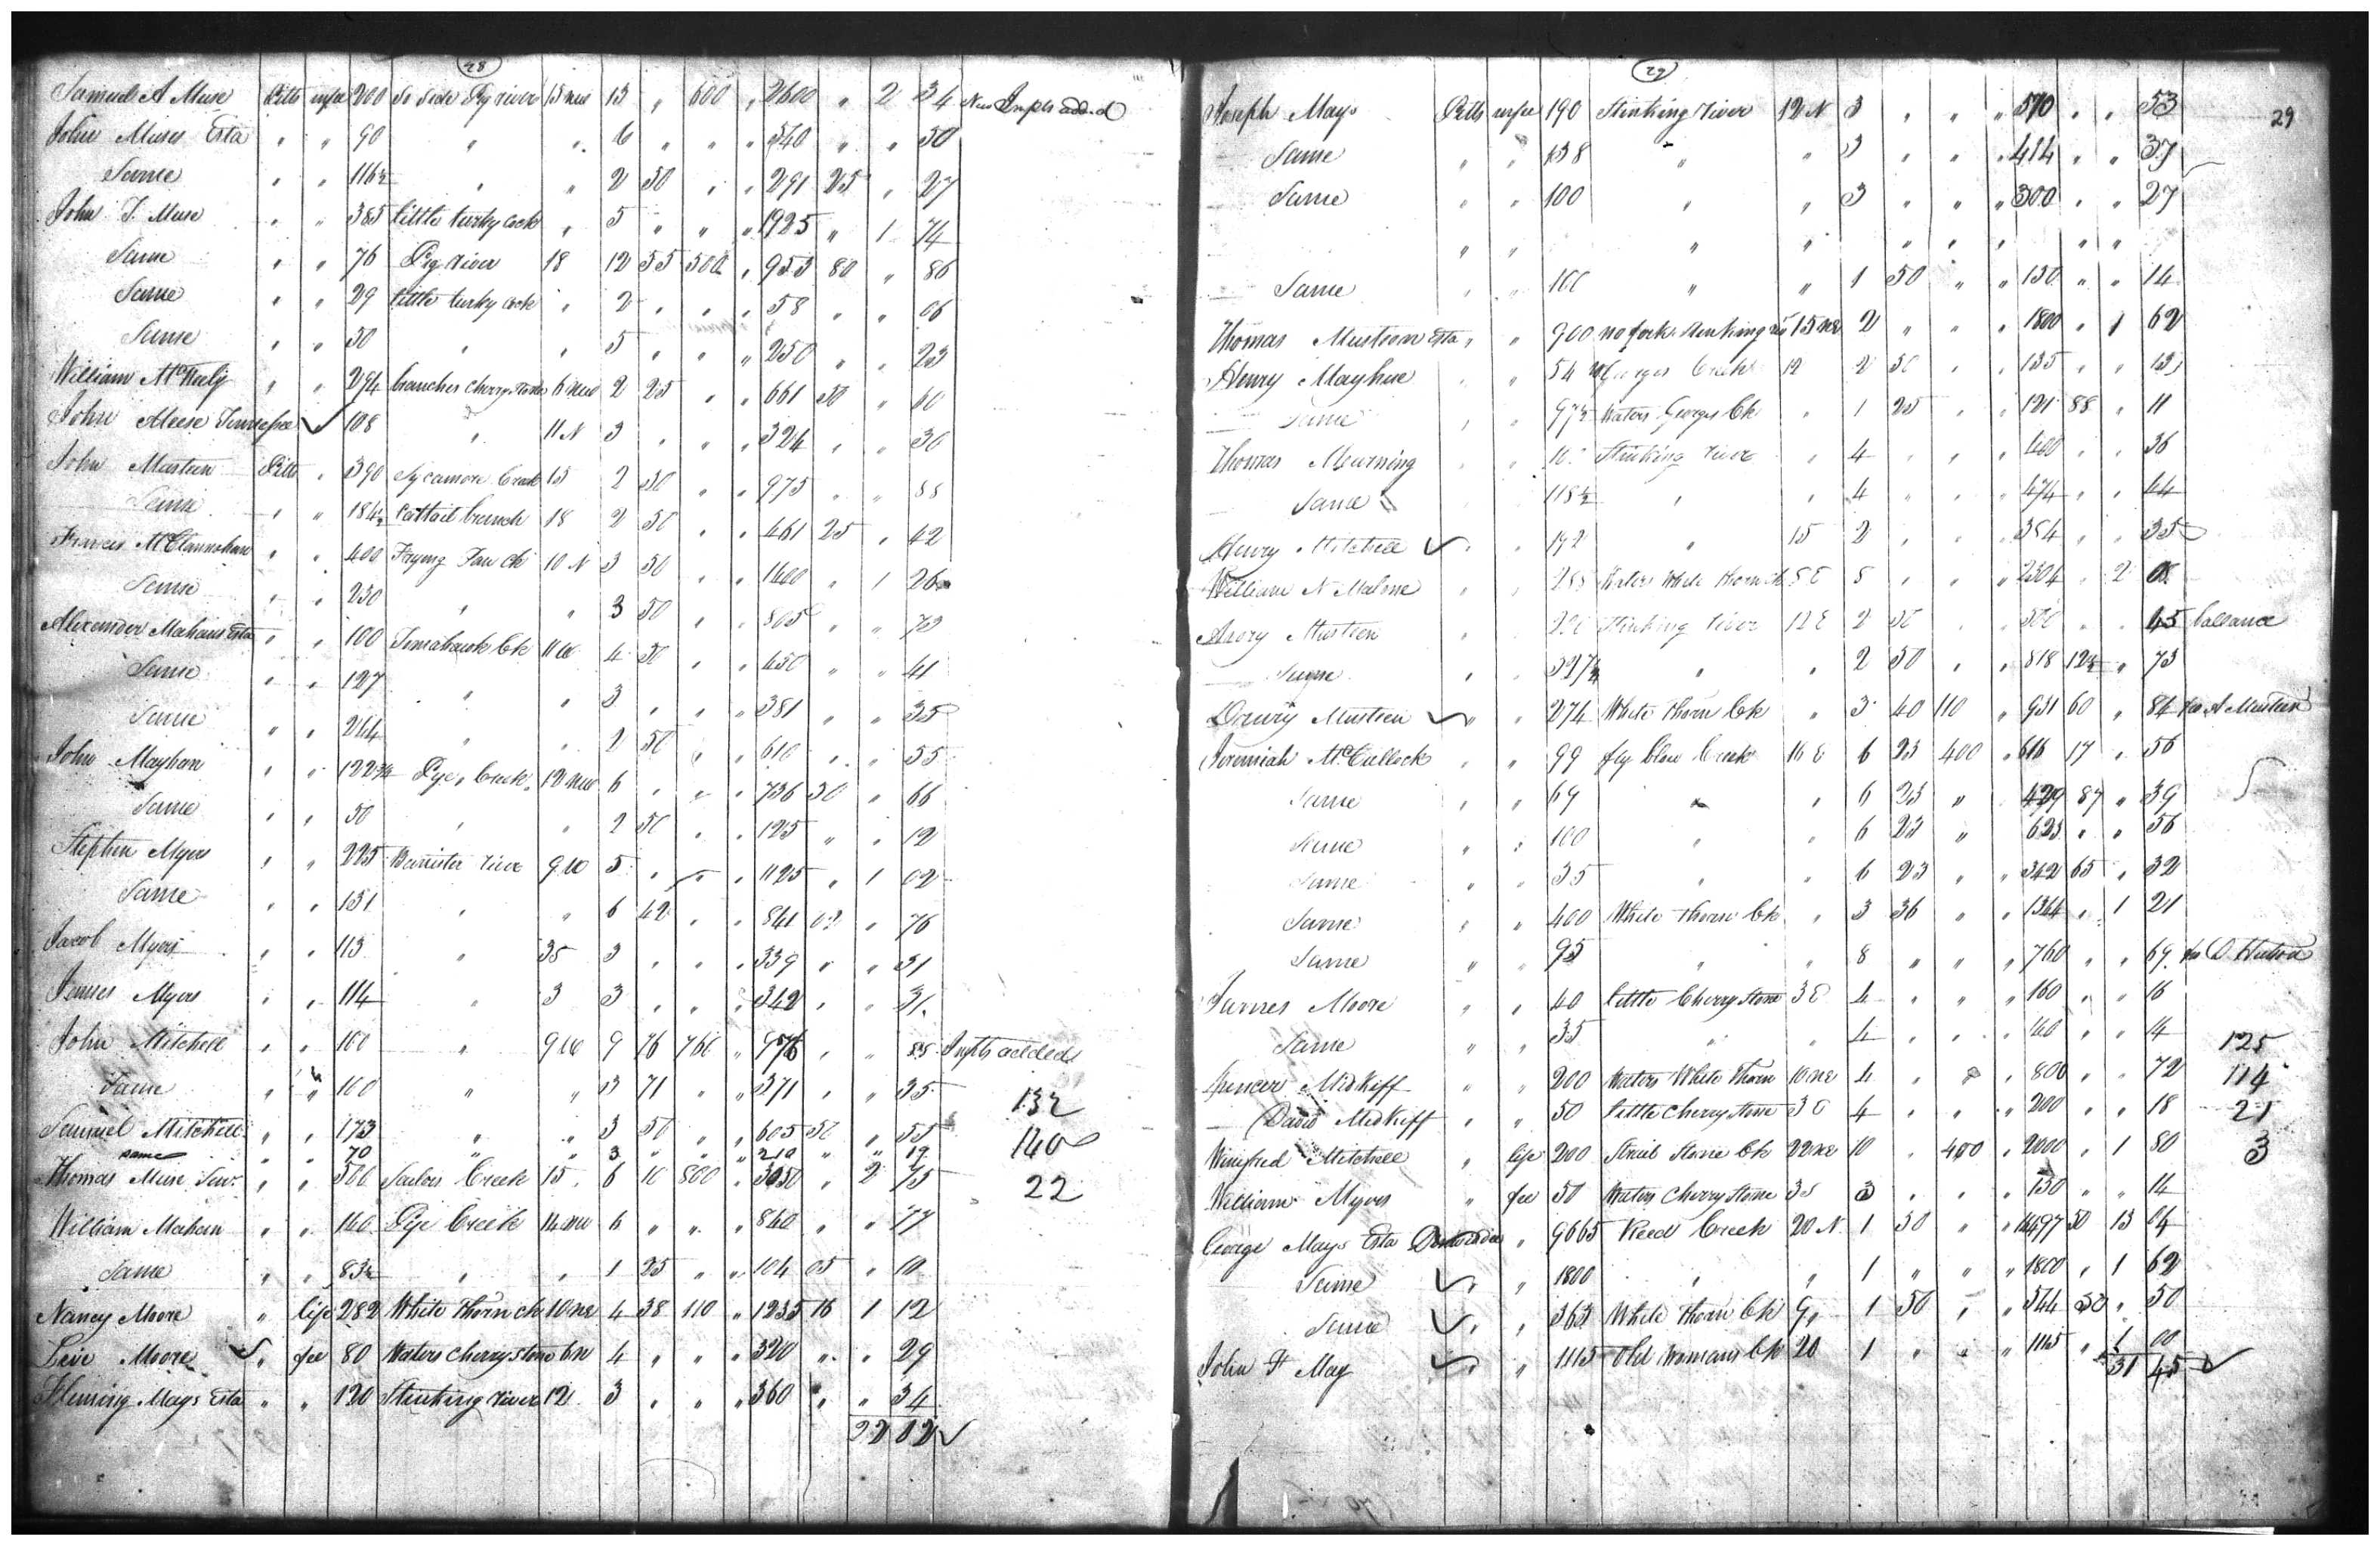 28
Samuel A Muse Pitts infee 200 So Side Pig river 15 NW 13 " 600 " 2600 " 2 34 New Impts added
John Muses Esta " " 90 " " 6 " " " 540 " " 50
Same " " 116½ " " 2 50 " " 291 25 " 27
John T. Muse " " 385 little turky cock " 5 " " " 1925 " 1 74
Same " " 76 Pig river 18 12 55 500 " 953 80 " 86
Same " " 29 little turky cock " 2 " " " 58 " " 06
Same " " 50 " " 5 " " " 250 " " 23
William McNeely " " 294 branches Cherrystone 6 NW 2 25 " " 661 50 " 60
John Meese Tennessee " 108 " 11 N 3 " " " 324 " " 30
John Musteen Pitts " 390 Sycamore Creek 13 2 50 " " 975 " " 88
Same " " 184½ Cattail branch 18 2 50 " " 461 25 " 42
Frances McClannahan " " 400 Frying Pan Ck 10 N 3 50 " " 1400 " 1 26
Same " " 230 " " 3 50 " " 805 " " 73
Alexander Mahans Esta " " 100 Tomahawk Ck 11 W 4 50 " " 450 " " 41
Same " " 127 " " 3 " " " 381 " " 35
Same " " 244 " " 2 50 " " 610 " " 55
John Mayhan " " 122¾ Pye, Creek 12 NW 6 " " " 736 50 " 66
Same " " 50 " " 2 50 " " 125 " " 12
Stephen Myers " " 225 Bannister river 9 W 5 " " " 1125 " 1 02
Same " " 131 " " 6 42 " " 841 02 " 76
Jacob Myers " " 113 " 35 3 " " " 339 " " 31
James Myers " " 114 " 3 3 " " " 342 " " 31
John Mitchell " " 100 " 9 W 9 76 766 " 976 " " 88 Impts added
Same " " 100 " " 3 71 " " 371 " " 35
132
Samuel Mitchell " " 173 " " 3 50 " " 605 50 " 55
same " " 70 " " 3 " " " 210 " " 19
140
Thomas Muse Senr. " " 500 Sailors Creek 15 " 6 10 800 " 3050 " 2 75
22
William Mahan " " 140 Pye Creek 14 NW 6 " " " 840 " " 77
Same " " 83¼ " " 1 25 " " 104 05 " 10
Nancy Moore " life 282 White thorn ck 10 NE 4 38 110 " 1235 16 1 12
Levi Moore " fee 80 Waters Cherrystone 6 N 4 " " " 320 " " 29
Fleming Mays Esta " " 120 Stinking river 12 3 " " " 360 " " 34
22 02

29
29
Joseph Mays Pitts infee 190 Stinking river 12 N 3 " " " 570 " " 53
Same " " 138 " " 3 " " " 414 " " 37
Same " " 100 " " 3 " " " 300 " " 27
" " " " " " " " " "
Same " " 100 " " 1 50 " " 150 " " 14
Thomas Musteen Esta " " 900 no fork Stinking rir 15 NE 2 " " " 1800 " 1 62
Henry Mayhue " " 54 Georges Creek 12 2 50 " " 135 " " 13
Same " " 97½ Waters Georges Ck " 1 25 " " 121 88 " 11
Thomas Murning " " Stinking river " 4 " " " 400 " " 36
Same 118½ " " 4 " " " 474 " " 44
Henry Mitchell " " 192 " 15 2 " " " 384 " " 35
William N Malone " " 288 Waters White thorn ck 5 E 8 " " " 2304 " 2 08
Avory Musteen " Stinking river 12 E 2 50 " " 500 " " 45 ballance
Same " " 327¼ " " 2 50 " " 818 12½ " 73
Drury Musteen " " 274 White thorn Ck " 3 40 110 " 931 60 " 84 for A Musteen
Jeremiah McCullock " " 99 fly blow Creek 16 E 6 23 400 " 616 17 " 56
Same " " 69 " " 6 23 " 429 87 " 39
Same " " 100 " " 6 23 " 623 " " 56
Same " " 55 " " 6 23 " " 342 65 " 32
Same " " 400 White thorn Ck " 3 36 " " 1344 " 1 21
Same " " 95 " " 8 " " " 760 " " 69 for D Hutson
James Moore " " 40 little Cherry stone 3 E 4 " " " 160 " " 16
Same " " 35 " " 4 " " " 140 " " 14
125
Spencer Midkiff " " 200 Waters White thorn 10 NE 4 " " " 800 " " 72
114
David Midkiff " " 50 little cherry stone 3 E 4 " " " 200 " " 18
21
Winefred Mitchell " life 200 Strait Stone Ck 22 NE 10 " 400 " 2000 " 1 80
3
William Myers " fee 50 Waters Cherry stone 3 S 3 " " " 150 " " 14
George Mays Esta " 9665 Reed Creek 20 N 1 50 " " 14497 50 13 04
Same " " 1800 " " 1 " " " 1800 " 1 62
Same " " 363 White thorn Ck 9 " 1 50 " " 544 50 " 50
John F May " " 1115 Old Womans Ck 20 1 " " " 1115 " 1 00
31 45